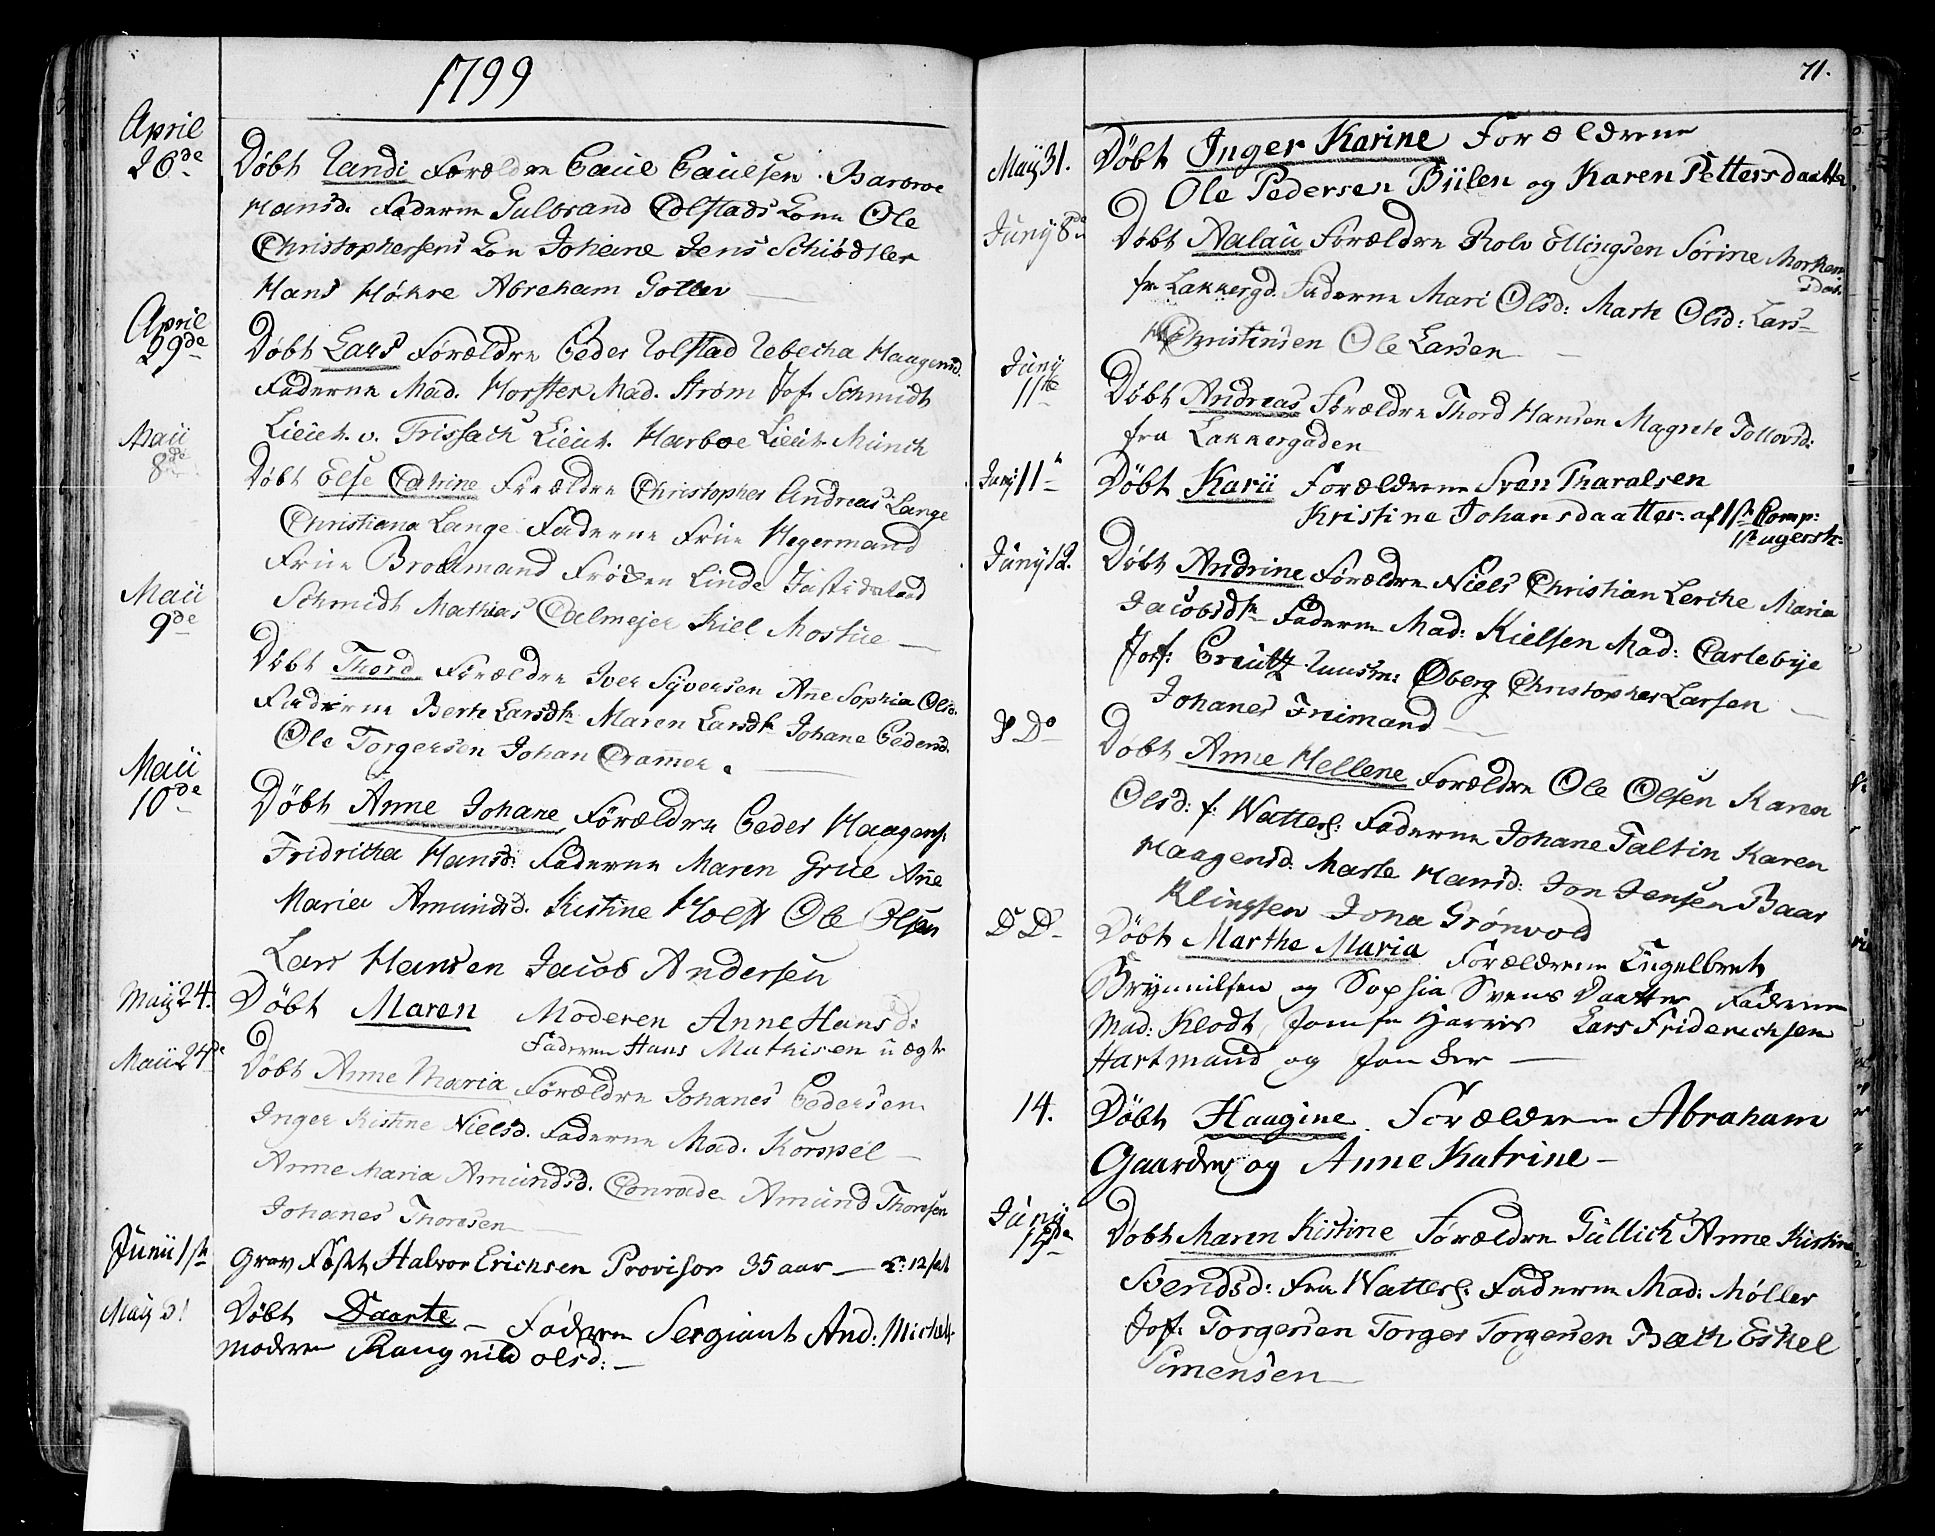 1799
April
26de
Døbt Randi Forældre Paul Paulsen Barbroe
Hansd. Fadderne Gulbrand Colstads Kone Ole
Christophersens Kon Johane Jens Schiødtler
Hans Høkre Abraham
April
29de
Døbt Lars Forældre Peder Rolstad Rebecha Haagensd.
Fadderne Mad. Horster Mad. Strøm Jof. Schmidt
Lieut. v. Trissach Lieut. Harboe Lieut. Münch
Maii
8de
Døbt Else Catrine Forældre Christopher Andreas Lange
Christiana Lange Fadderne Frue Hegermand
Frue Brockmand Frøken Linde
Schmidt Mathias Calmejer Kiel Mostue
Maii
9de
Døbt Thord Forældre Iver Syversen Ane Sophia Olsd.
Fadderne Berte Larsdtr Maren Larsdtr Johane Pedersd.
Ole Torgersen Johan Cramer.
Maii
10de
Døbt Anne Johane Forældre Peder Haagens:
Fridricka Hansd: Fadderne Maren Grue Ane
Maria Amundsd. Kistine Holst Ole Olsen
Lars Hansen Jacob Andersen
Maij 24.
Døbt Maren Moderen Anne Hansd:
Faderen Hans Mathisen uægte
Maii 24de
Døbt Anne Maria Forældre Johanes Pedersen
Inger Kistine Nielsd. Fadderne Mad. Korspel
Anne Maria Amundsd. Conrade Amund Thoresen
Johanes Thoresen
Junii 1ste
Grav Fæstet Halvor Erichsen Provisor 35 aar
May 31
Døbt Daarte Faderen Sergiant And: Michels
moderen Rangnild olsd:
71.
Maij 31.
Døbt Inger Karine Forældrene
Ole Pedersen Biilen og Karen Pettersdaatter.
Junij 8de
Døbt Aalau Forældre Rolv Ellingsen Sørine Morten
Dat.
fr. Lakkergd. Fadderne Mari Olsd: Marte Olsd: Lars
Christinsen Ole Larsen
Junij
11te
Døbt Andreas Forældre Thord Hansen Magrete Tollovsd:
fra Lakkergaden
Junij 11te
Døbt Karii Forældrene Sven Tharalsen
Kristine Johansdaatter af 1ste Comp:
Junij 12.
Døbt Andrine Forældre Niels Christian Lerche Maria
Jacobsdtr Fadderne Mad: Kielsen Mad: Carlebye
Jorf: Creutz Øberg Christopher Larsen
Johanes Friimand
Do
Døbt Anne Hellene Forældre Ole Olsen Karen
Olsd: f: Watters: Fadderne Johane Taltin Karen
Haagensd: Marte Hansd: Jon Jensen Baar
Klingsen Jona Grønvold
D Do
Døbt Marthe Maria Forældrene Engelbret
Brynnilsen og Sophia Svens Daatter Fadderne
Mad: Klodt Jomfr Harris Lars Friderichsen
Hartmand og
14.
Døbt Haagine Forældrene Abraham
Gaarder og Anne Katrine
Junij
15de
Døbt Maren Kistine Forældre Tullich Anne Kistine
Svendsd: Fra Watters: Fadderne Mad: Møller
Jof: Torgersen Torger Torgersen Bæth Eskel
Simensen